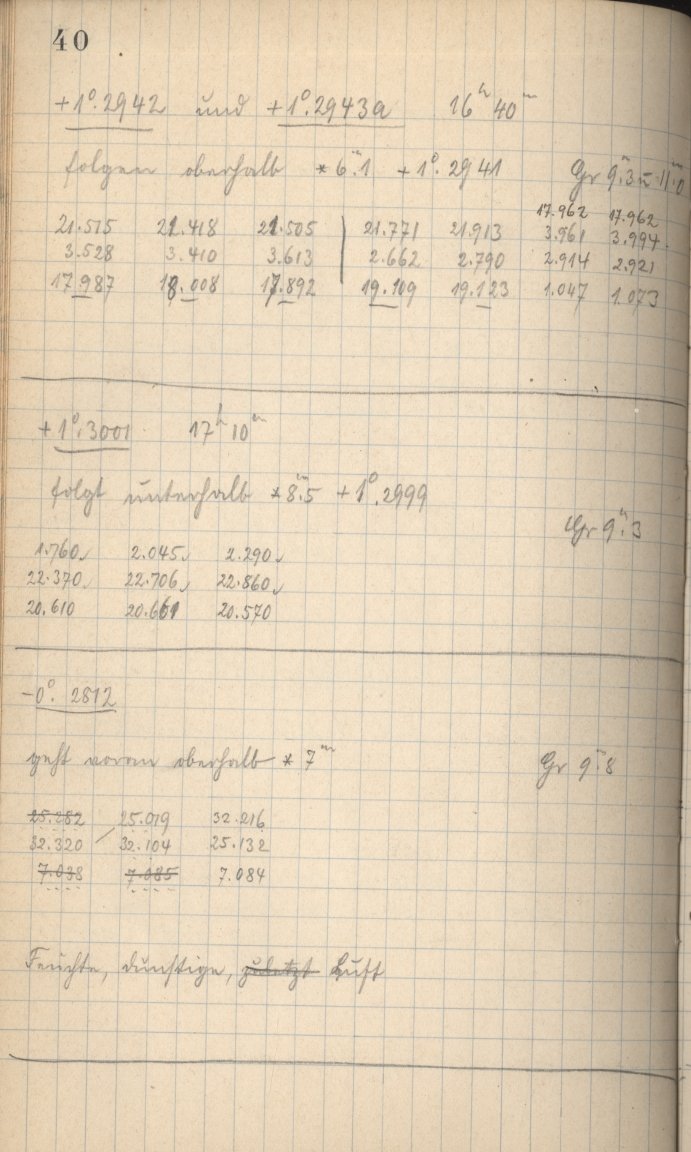 40
+1°.2942 und +1°.2943a 16h 40m
folgen oberhalb * 6m.1 +1°.2941 Gr 9m.3 u 11m.0
17.962 17.962
21.515 21.418 21.505 21.771 21.913 3.961 3.994
3.528 3.410 3.613 2.662 2.790 2.914 2.921
17.987 18.008 17.892 19.109 19.123 1.047 1.073
+1°.3001 17h 10m
folgt unterhalb * 8m.5 +1°.2999
Gr 9m.3
1.760 2.045 2.290
22.370 22.706 22.860
20.610 20.661 20.570
-0°.2812
geht voran oberhalb * 7m Gr 9m.8
25.282 25.019 32.216
32.320 32.104 25.132
7.038 7.085 7.084
Feuchte, dunstige, zuletzt Luft